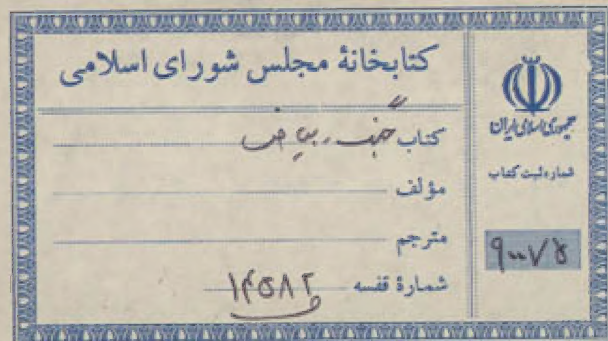 کتابخانهٔ مجلس شورای اسلامی
کتاب جُنگ - بیاض
مؤلف
مترجم
شمارهٔ قفسه ۱۴۵۸۲
جمهوری اسلامی ایران
شماره ثبت کتاب
۹۰۰۷۵